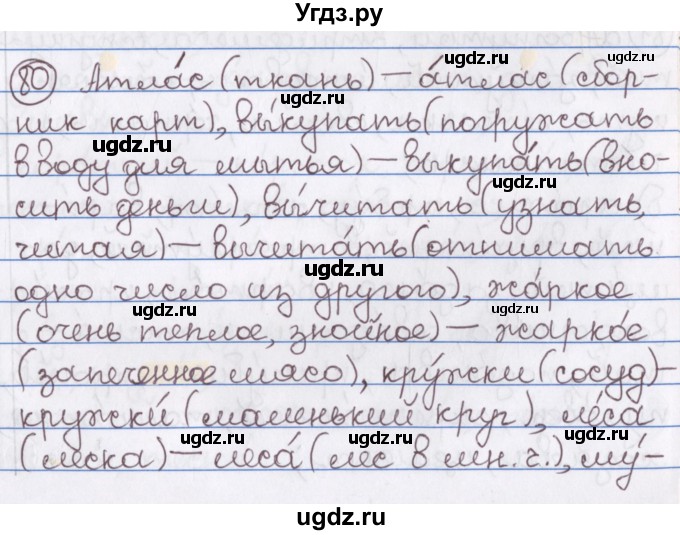 Угдз.ру
80 Атла́с (ткань) — а́тлас (сбор-
ugdz.ru ugdz.ru
ник карт), вы́купать (погружать
ugdz.ru
в воду для мытья) — выкупа́ть (вно-
сить деньги), вы́читать (узнать,
ugdz.ru
читая) — вычита́ть (отнимать
ugdz.ru
одно число из другого), жа́ркое
ugdz.ru ugdz.ru
(очень теплое, знойное) — жарко́е
ugdz.ru
(запеченное мясо), кру́жки (сосуд) —
ugdz.ru
кружки́ (маленький круг), ле́са
ugdz.ru ugdz.ru
(леска) — леса́ (лес в мн. ч.), му́-
ugdz.ru
ugdz.ru